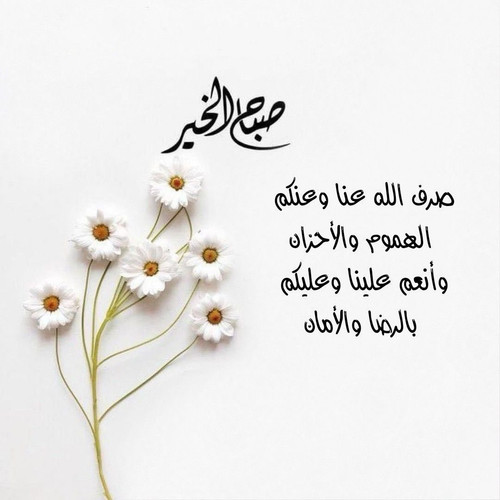 صباح الخير
صرف الله عنا وعنكم
الهموم والأحزان
وأنعم علينا وعليكم
بالرضا والأمان